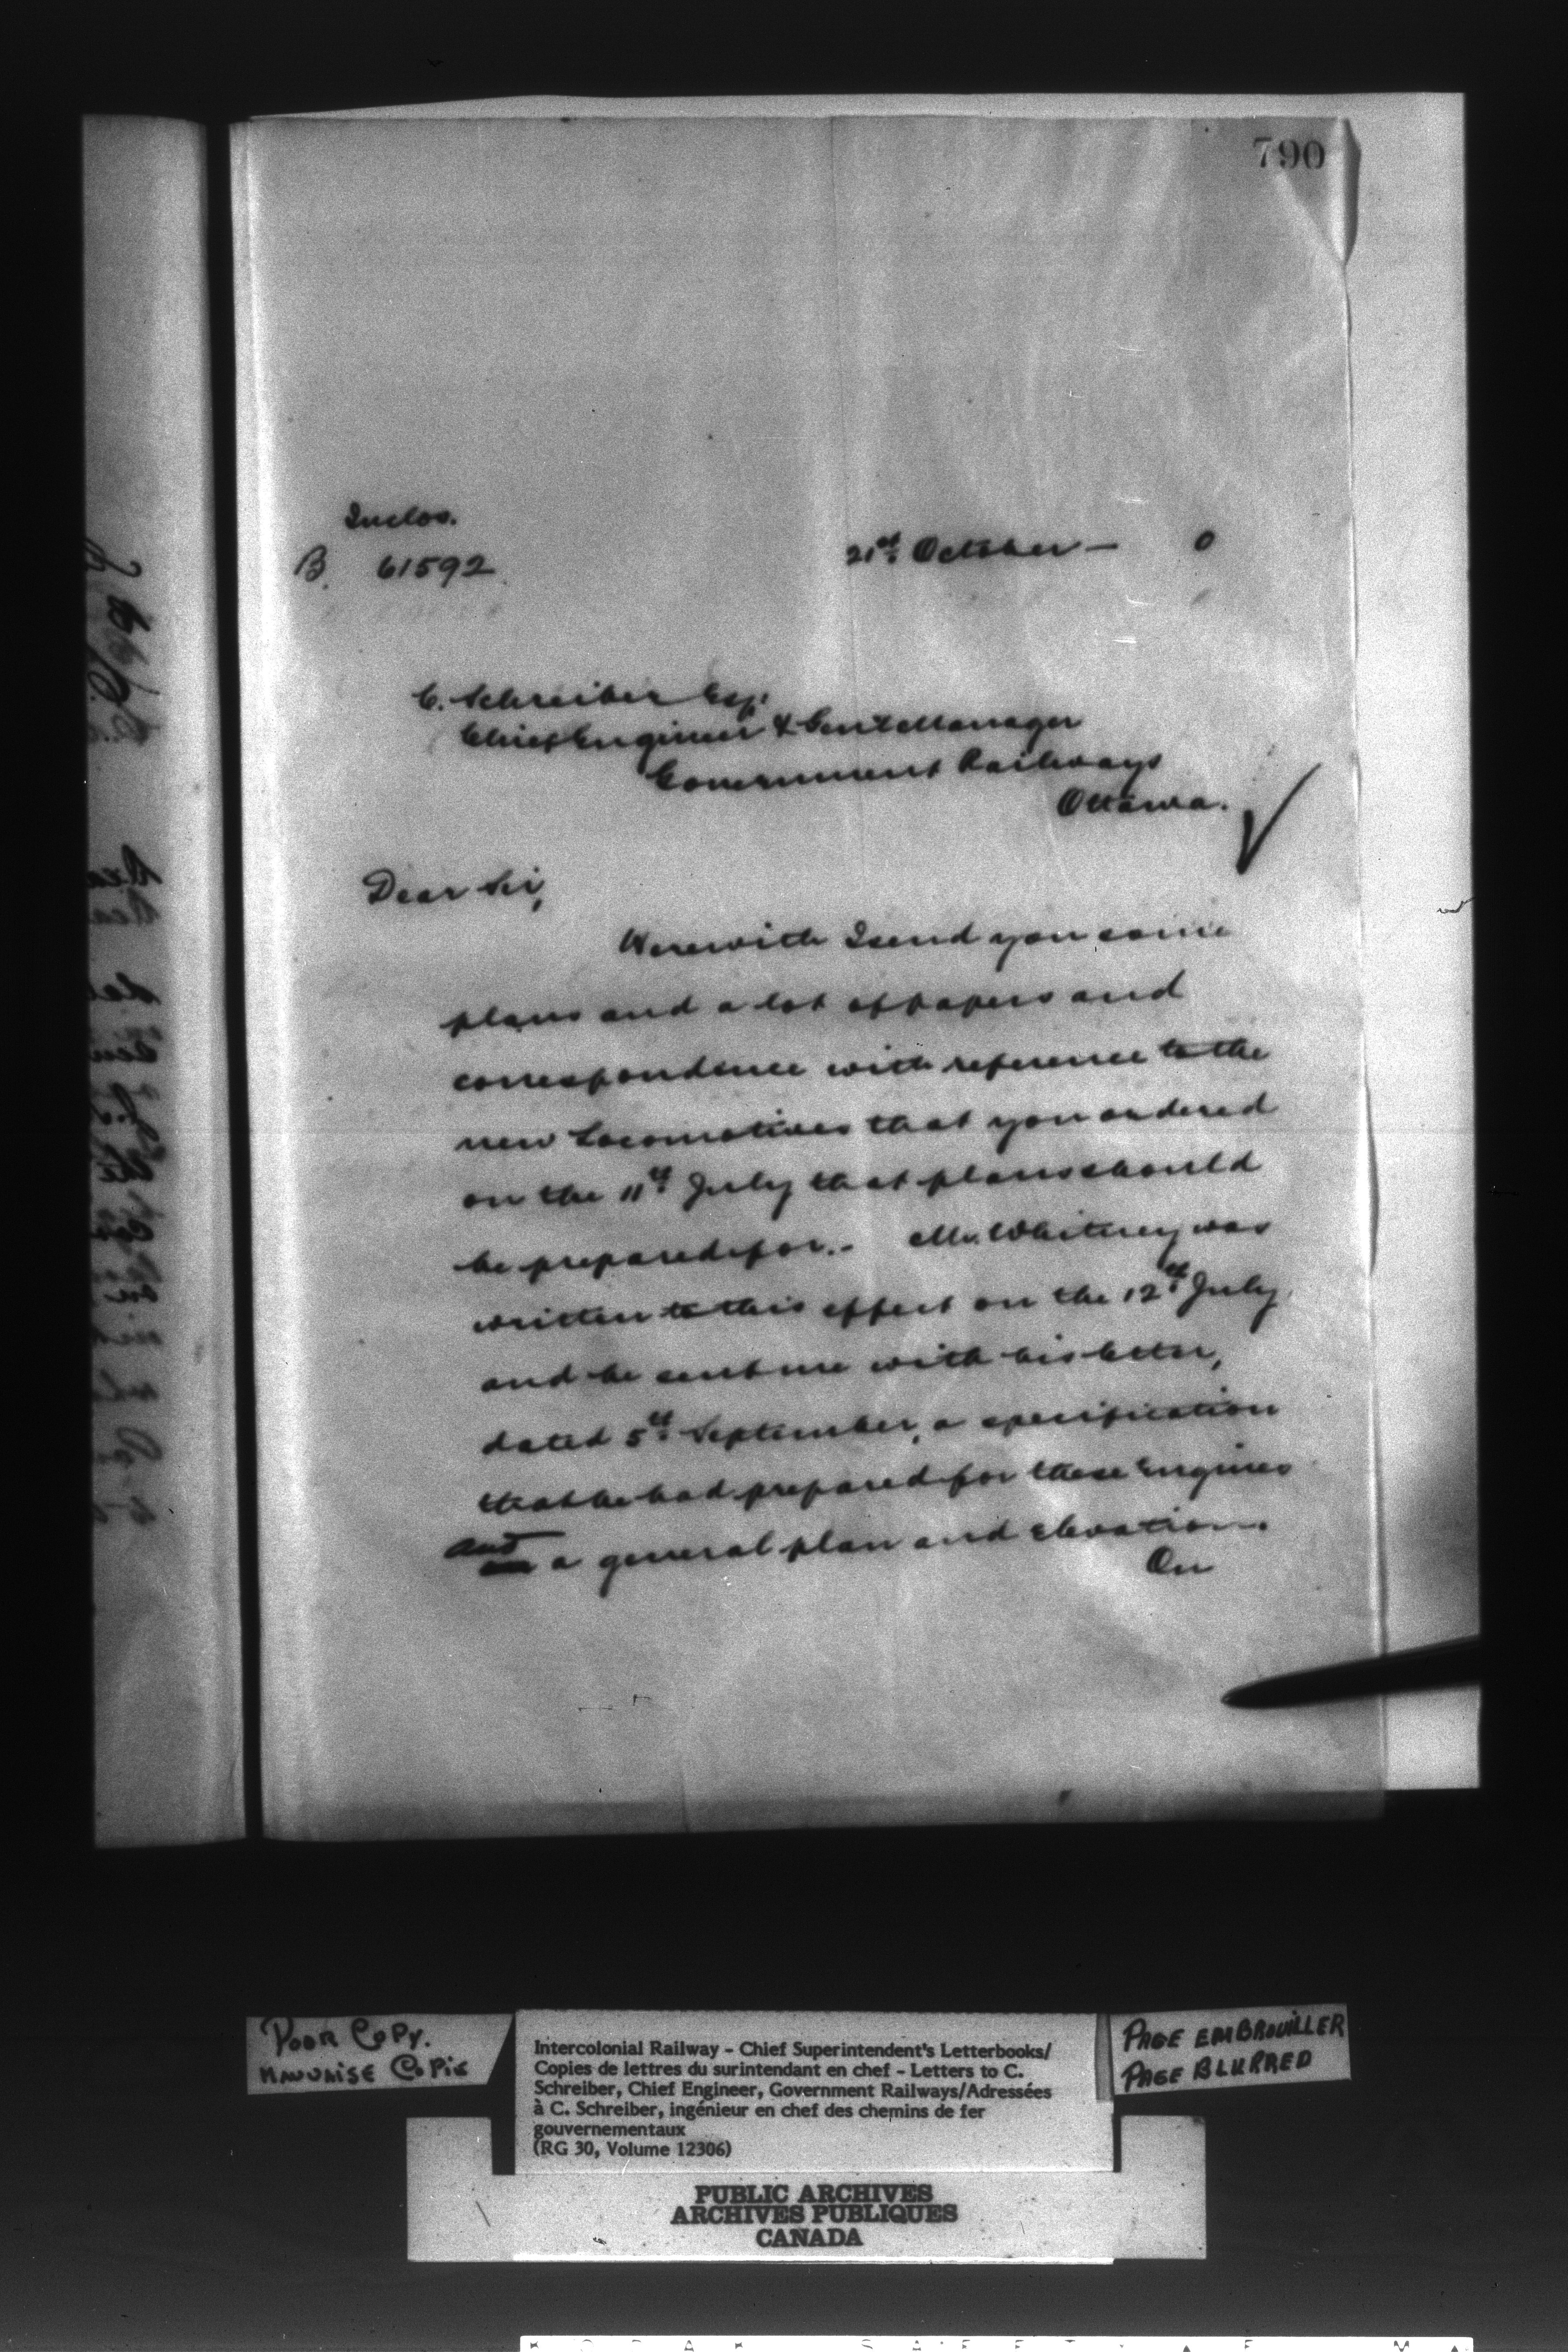 790
Inclos.
B. 61592
21st October - 0
C. Schreiber Esq.
Chief Engineer & Genl Manager
Government Railways
Ottawa.
Dear Sir,
Herewith I send you some
plans and a lot of papers and
correspondence with reference to the
new Locomotives that you ordered
on the 11th July that plans should
be prepared for. - Mr. Whitney was
written to this effect on the 12th July
and he sent me with his letter,
dated 5th September, a specification
that he had prepared for these Engines
and a general plan and elevation.
On
POOR COPY.
MAUVAISE COPIE
Intercolonial Railway - Chief Superintendent's Letterbooks/
Copies de lettres du surintendant en chef - Letters to C.
Schreiber, Chief Engineer, Government Railways/Adressées
à C. Schreiber, ingénieur en chef des chemins de fer
gouvernementaux
(RG 30, Volume 12306)
PAGE EMBROUILLER
PAGE BLURRED
PUBLIC ARCHIVES
ARCHIVES PUBLIQUES
CANADA